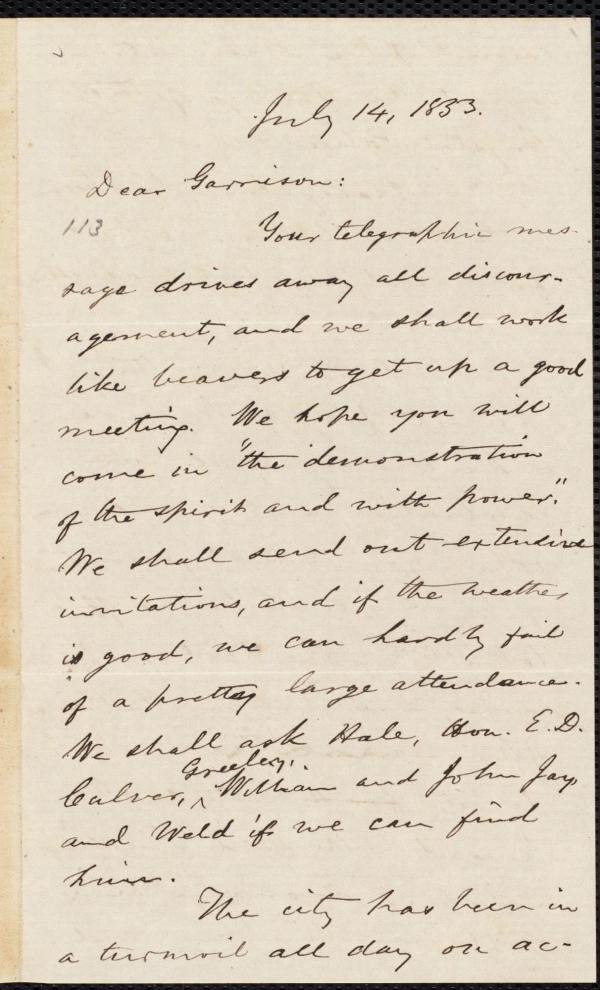 July 14, 1853.
Dear Garrison:
113
Your telegraphic mes-
sage drives away all discour-
agement, and we shall work
like beavers to get up a good
meeting. We hope you will
come in "the demonstration
of the spirit and with power."
We shall send out extensive
invitations, and if the weather
is good, we can hardly fail
of a pretty large attendance.
We shall ask Hale, Hon. E. D.
Greeley,
Culver, ^ William and John Jay,
and Weld if we can find
him.
The city has been in
a turmoil all day on ac-